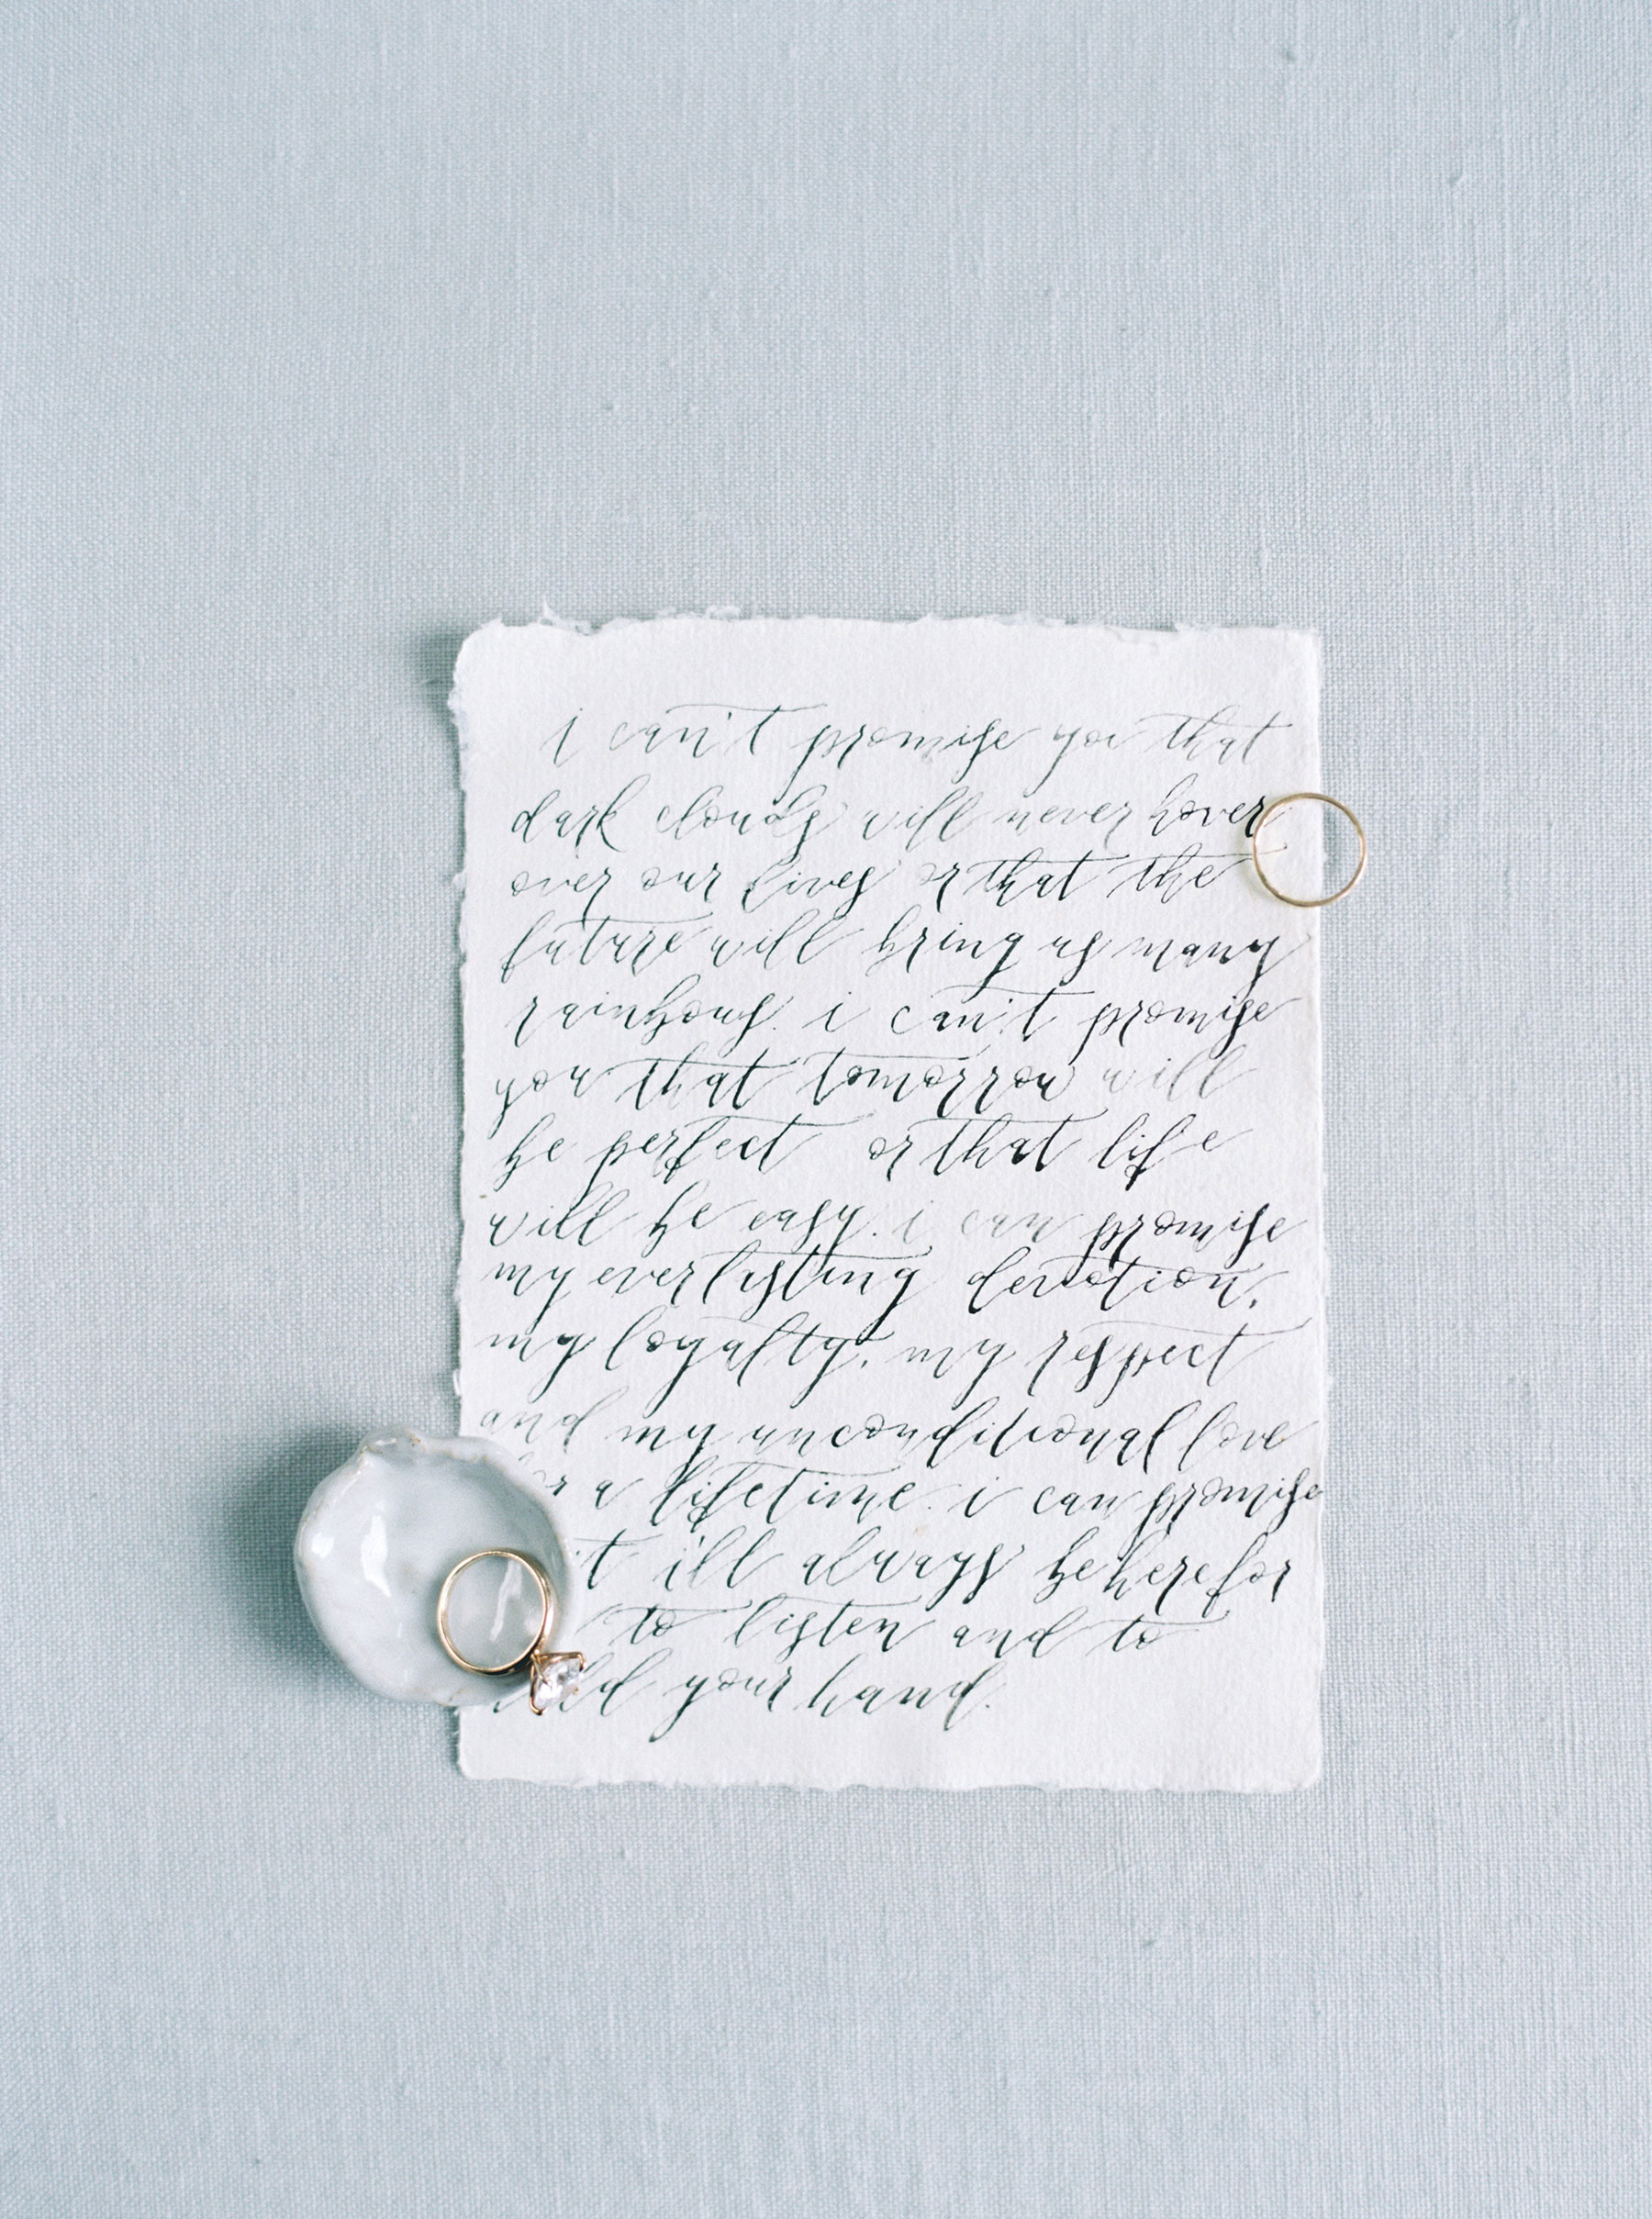 i can't promise you that
dark clouds will never hover
over our lives or that the
future will bring us many
rainbows. i can't promise
you that tomorrow will
be perfect or that life
will be easy. i can promise
my everlasting devotion,
my loyalty, my respect
and my unconditional love
a lifetime. i can promise
i'll always be here for
to listen and to
your hand.